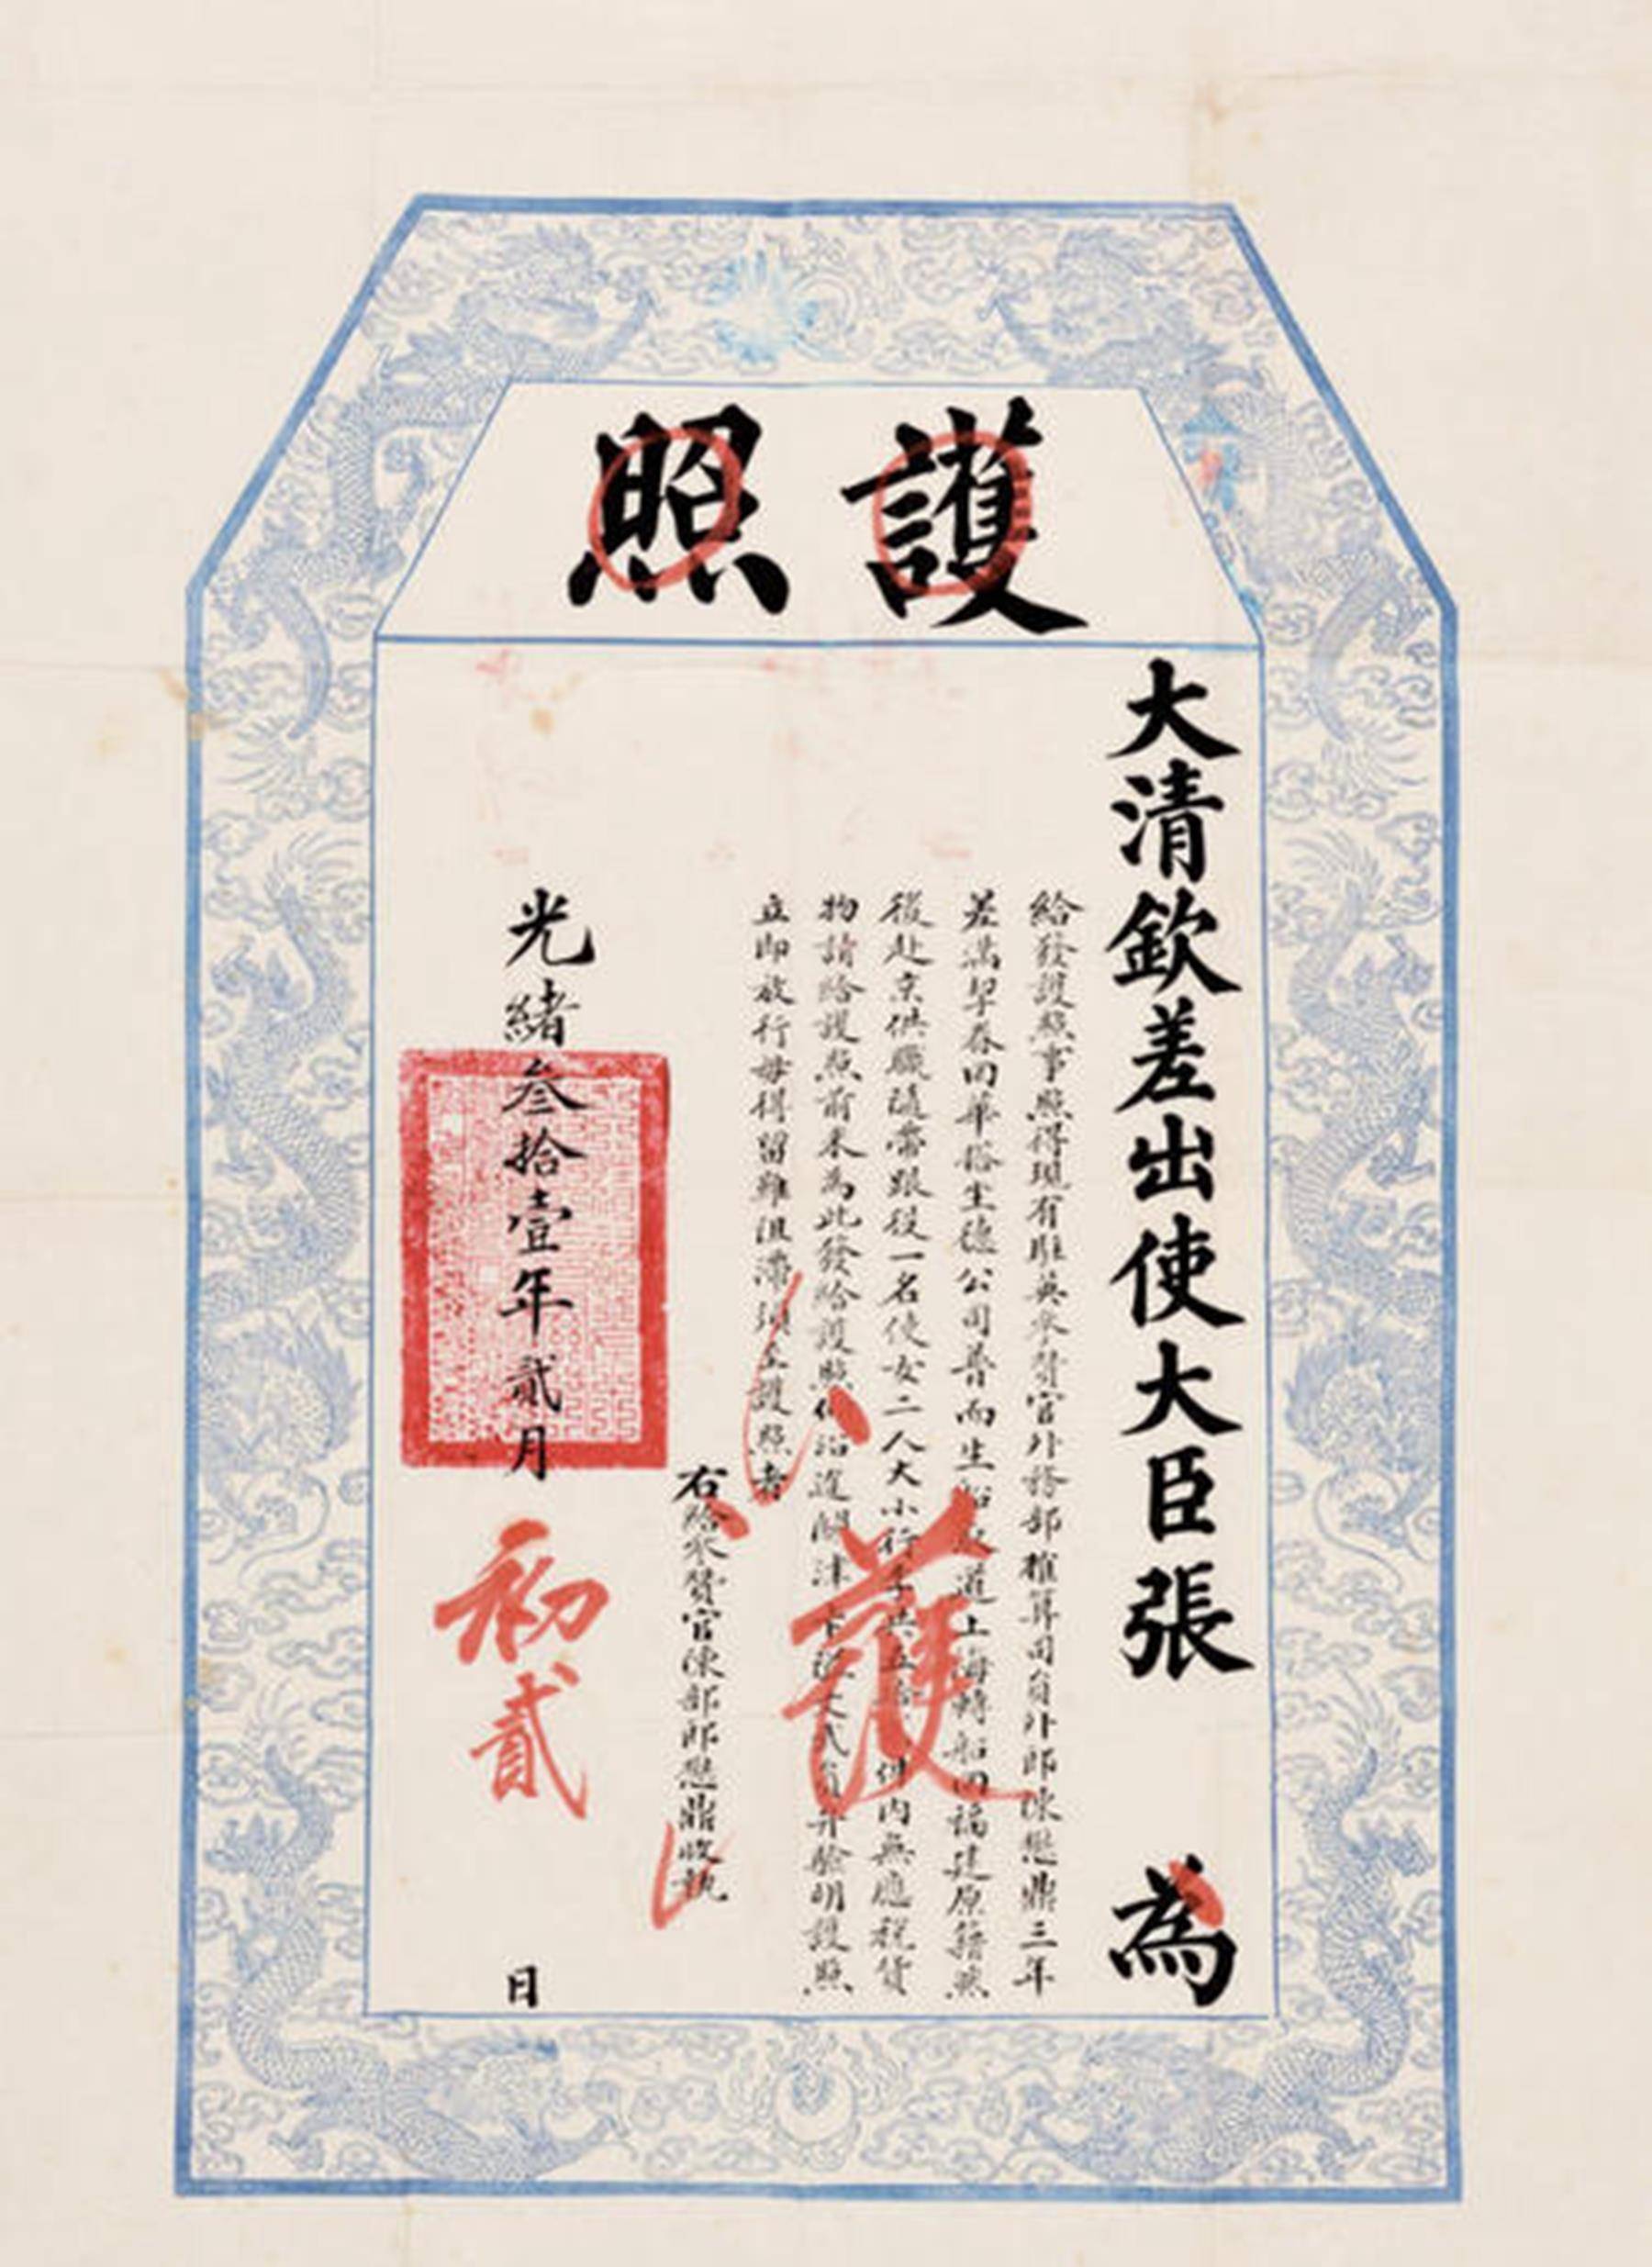 護照
大清欽差出使大臣張　為
給發護照事照得現有駐英參贊官外務部榷算司員外郎陳懋鼎三年
差滿挈眷回華搭坐德公司普而生船取道上海轉船回福建原籍然
後赴京供職隨帶跟役一名使女二人大小行李共五拾件內無應稅貨
物請給護照前來為此發給護照仰沿途關津卡文武員弁驗明護照
立即放行毋得留難阻滯須至護照者
右給參贊官陳部郎懋鼎收執
光緒叁拾壹年貳月初貳日
護